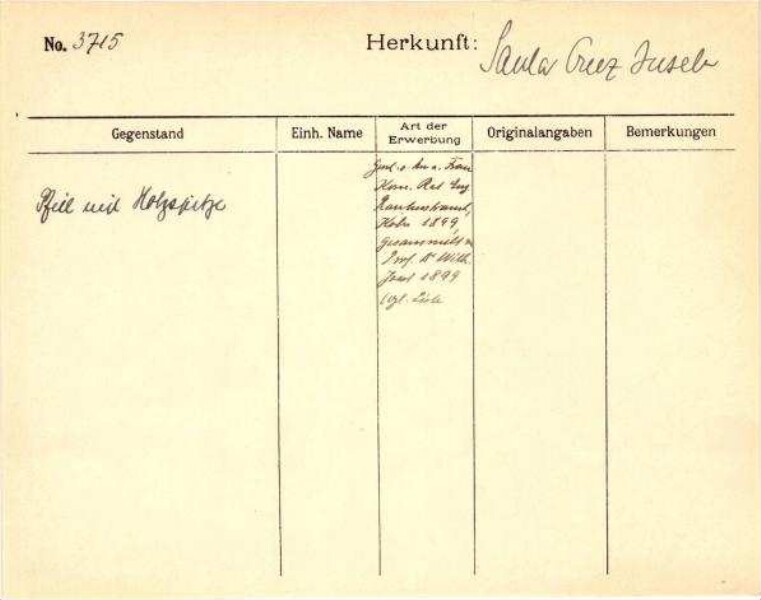 No. 3715
Herkunft: Santa Cruz Inseln
Gegenstand
Einh. Name
Art der Erwerbung
Originalangaben
Bemerkungen
Pfeil mit Holzspitze
Gesch. v. Frau
Kom. Rat Eug
Rautenstrauch,
Köln 1899,
gesammelt v.
Prof. Dr Wilh.
Joest 1899
vgl. Liste